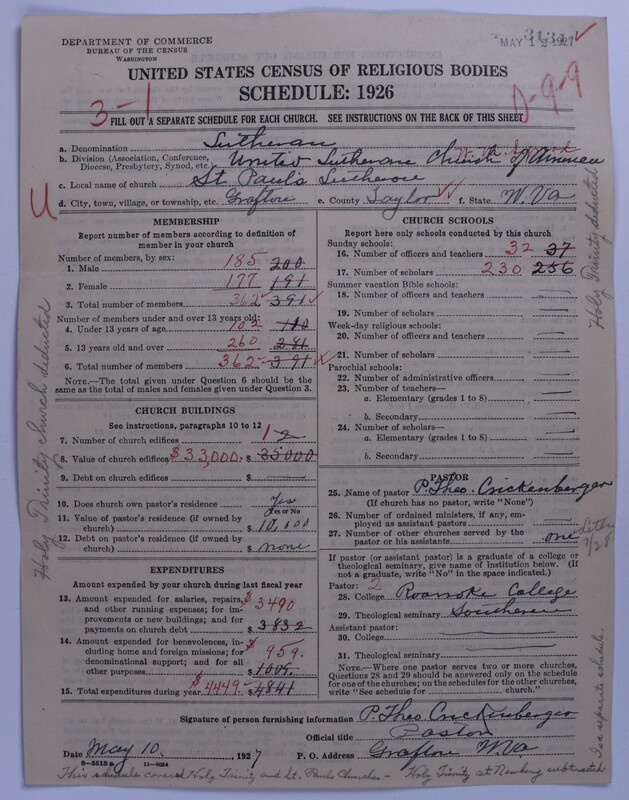 DEPARTMENT OF COMMERCE
BUREAU OF THE CENSUS
WASHINGTON
MAY 1927
UNITED STATES CENSUS OF RELIGIOUS BODIES
SCHEDULE: 1926
3-1
D-9-9
FILL OUT A SEPARATE SCHEDULE FOR EACH CHURCH. SEE INSTRUCTIONS ON THE BACK OF THIS SHEET
a. Denomination Lutheran
b. Division (Association, Conference, Diocese, Presbytery, Synod, etc.) United Lutheran Church of America
c. Local name of church St Paul's Lutheran
d. City, town, village, or township, etc. Grafton e. County Taylor f. State W. Va
U
MEMBERSHIP
Report number of members according to definition of member in your church
Number of members, by sex:
1. Male 185 200
2. Female 177 191
3. Total number of members 362 391
Number of members under and over 13 years old:
4. Under 13 years of age 102 110
5. 13 years old and over 260 281
6. Total number of members 362 391
NOTE.—The total given under Question 6 should be the same as the total of males and females given under Question 3.
CHURCH BUILDINGS
See instructions, paragraphs 10 to 12
7. Number of church edifices 1 2
8. Value of church edifices $33,000. $ 35000
9. Debt on church edifices $
10. Does church own pastor's residence? Yes
Yes or No
11. Value of pastor's residence (if owned by church) $ 10,000
12. Debt on pastor's residence (if owned by church) $ none
EXPENDITURES
Amount expended by your church during last fiscal year
13. Amount expended for salaries, repairs, and other running expenses; for improvements or new buildings; and for payments on church debt $3490 $ 3832
14. Amount expended for benevolences, including home and foreign missions; for denominational support; and for all other purposes $959. $ 1009.
15. Total expenditures during year $4449. $ 4841
CHURCH SCHOOLS
Report here only schools conducted by this church
Sunday schools:
16. Number of officers and teachers 32 37
17. Number of scholars 230 256
Summer vacation Bible schools:
18. Number of officers and teachers
19. Number of scholars
Week-day religious schools:
20. Number of officers and teachers
21. Number of scholars
Parochial schools:
22. Number of administrative officers
23. Number of teachers—
a. Elementary (grades 1 to 8)
b. Secondary
24. Number of scholars—
a. Elementary (grades 1 to 8)
b. Secondary
PASTOR
25. Name of pastor P. Theo. Crickenberger
(If church has no pastor, write "None")
26. Number of ordained ministers, if any, employed as assistant pastors
27. Number of other churches served by the pastor or his assistants one
If pastor (or assistant pastor) is a graduate of a college or theological seminary, give name of institution below. (If not a graduate, write "No" in the space indicated.)
Pastor: 2
28. College Roanoke College
29. Theological seminary Southern
Assistant pastor:
30. College
31. Theological seminary
NOTE.—Where one pastor serves two or more churches, Questions 28 and 29 should be answered only on the schedule for one of the churches; on the schedules for the other churches, write "See schedule for church."
Signature of person furnishing information P. Theo. Crickenberger
Official title Pastor
Date May 10, 1927 P. O. Address Grafton W Va
8—5518a 11—9024
This schedule covered Holy Trinity and St. Pauls Churches - Holy Trinity at Newburg subtracted
Holy Trinity church deducted
Holy Trinity deducted
Is a separate schedule.